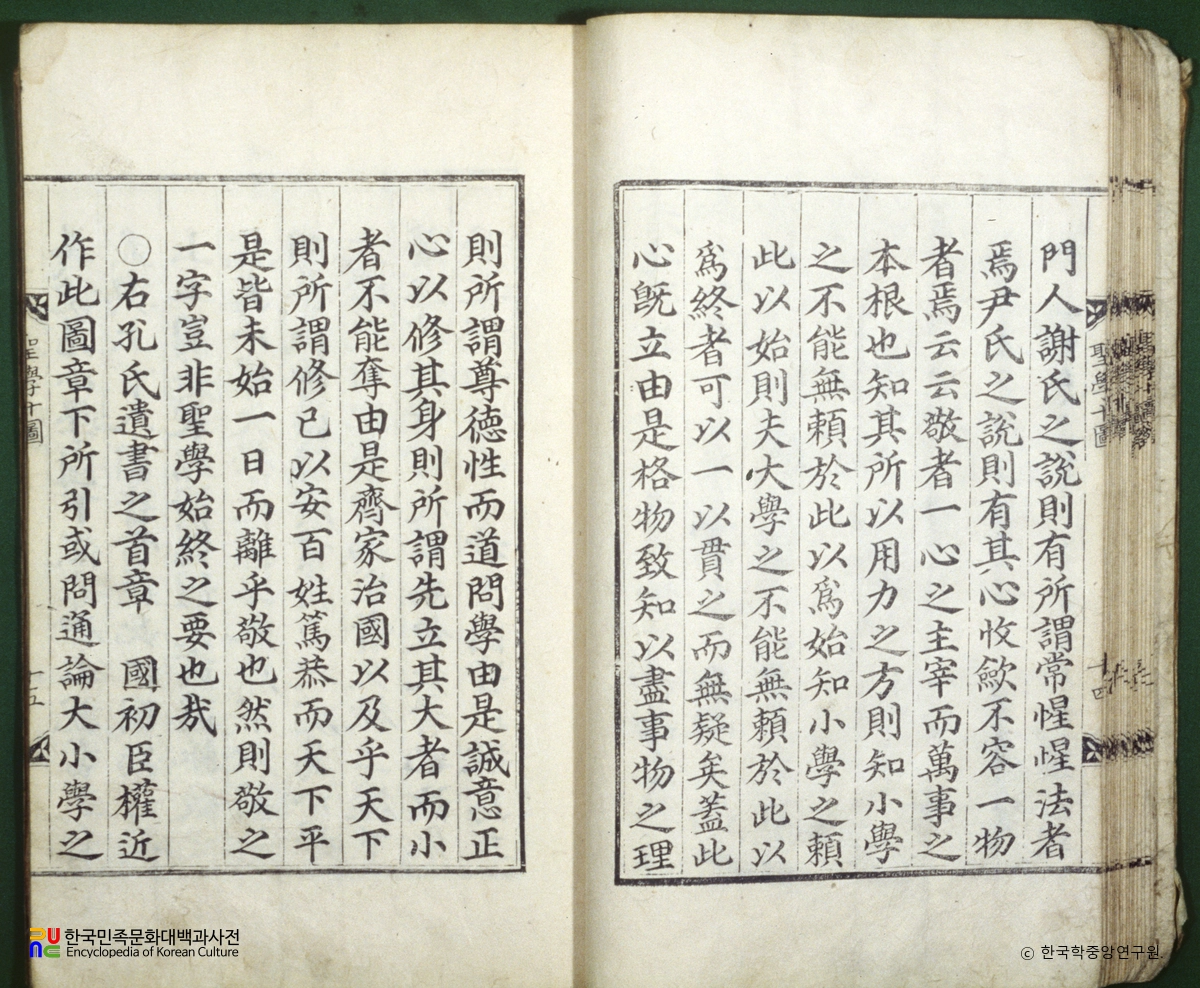 門人謝氏之說則有所謂常惺惺法者
焉尹氏之說則有其心收斂不容一物
者焉云云敬者一心之主宰而萬事之
本根也知其所以用力之方則知小學
之不能無賴於此以爲始知小學之賴
此以始則夫大學之不能無賴於此以
爲終者可以一以貫之而無疑矣蓋此
心旣立由是格物致知以盡事物之理
聖學十圖
十四
則所謂尊德性而道問學由是誠意正
心以修其身則所謂先立其大者而小
者不能奪由是齊家治國以及乎天下
則所謂修己以安百姓篤恭而天下平
是皆未始一日而離乎敬也然則敬之
一字豈非聖學始終之要也哉
○右孔氏遺書之首章 國初臣權近
作此圖章下所引或問通論大小學之
聖學十圖
十五
한국민족문화대백과사전
Encyclopedia of Korean Culture
© 한국학중앙연구원